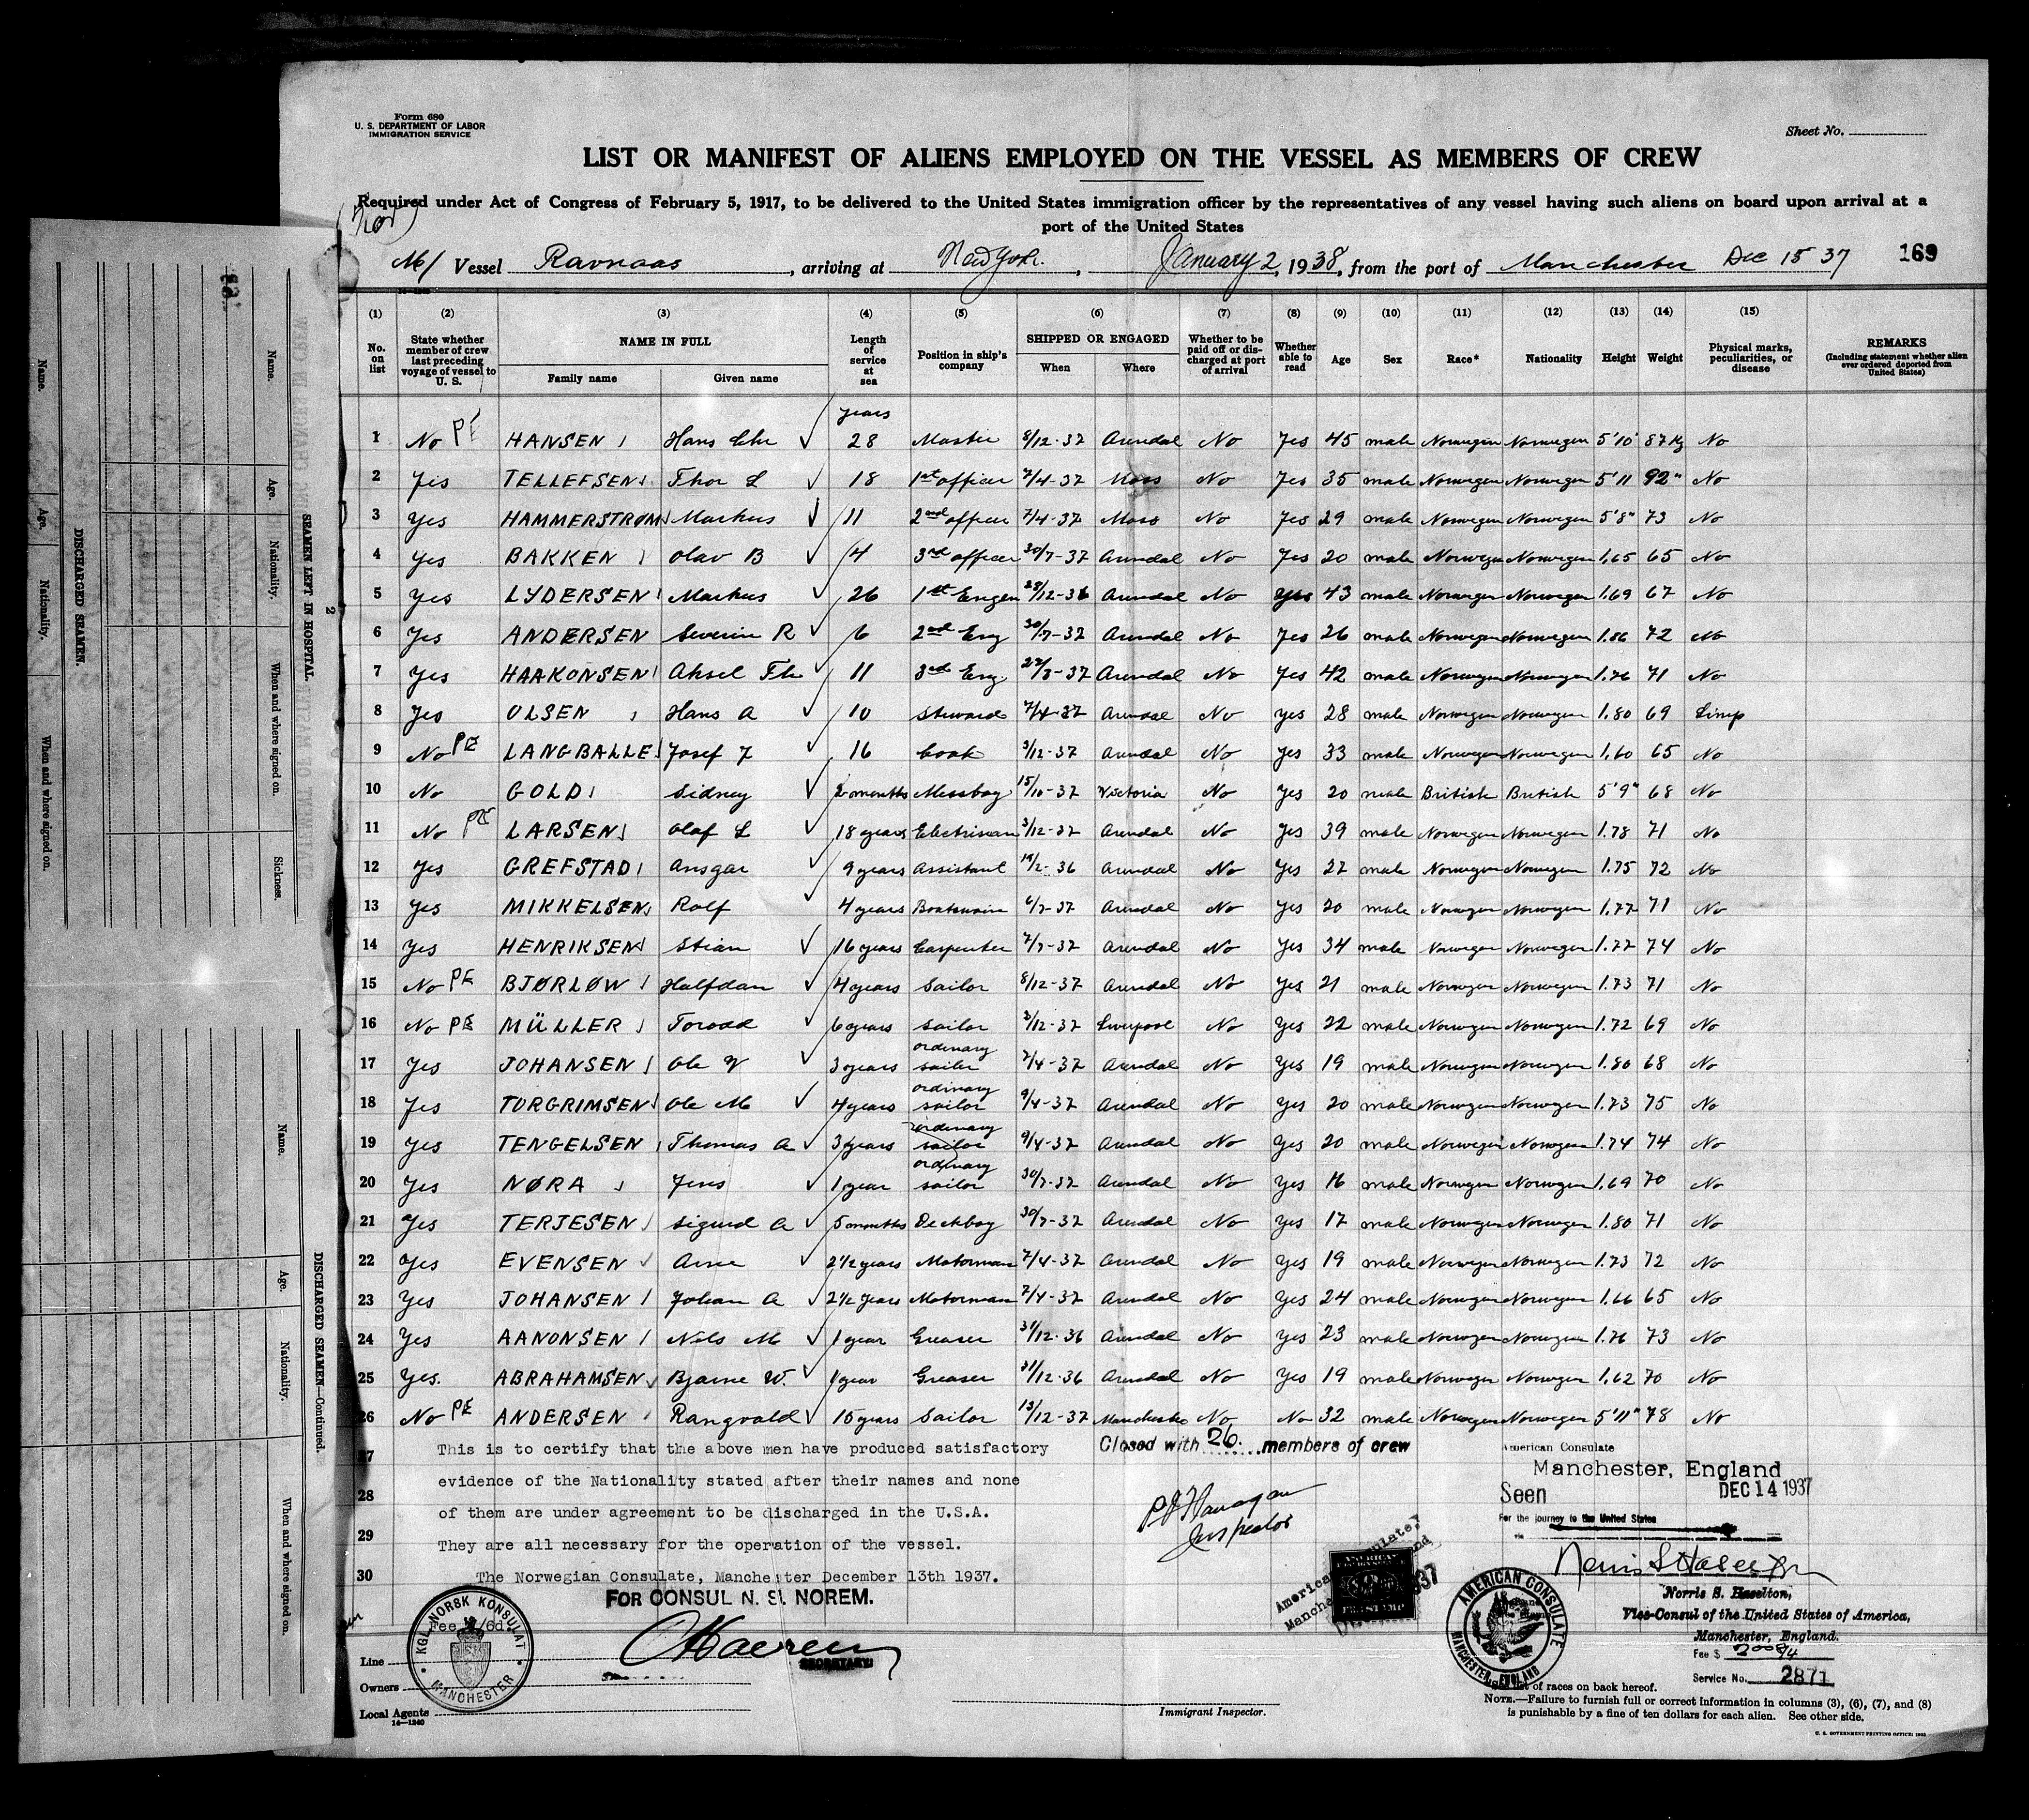 Form 680
U. S. DEPARTMENT OF LABOR
IMMIGRATION SERVICE
Sheet No.
LIST OR MANIFEST OF ALIENS EMPLOYED ON THE VESSEL AS MEMBERS OF CREW
Required under Act of Congress of February 5, 1917, to be delivered to the United States immigration officer by the representatives of any vessel having such aliens on board upon arrival at a
port of the United States
(Nor)
M/ Vessel Ravnaas, arriving at New York., January 2, 1938, from the port of Manchester Dec 15 37 169
(1) (2) (3) (4) (5) (6) (7) (8) (9) (10) (11) (12) (13) (14) (15)
No. on list State whether member of crew last preceding voyage of vessel to U. S. NAME IN FULL Family name Given name Length of service at sea Position in ship's company SHIPPED OR ENGAGED When Where Whether to be paid off or discharged at port of arrival Whether able to read Age Sex Race* Nationality Height Weight Physical marks, peculiarities, or disease REMARKS (Including statement whether alien ever ordered deported from United States)
years
1 No PE HANSEN Hans Chr 28 Master 8/12-37 Arendal No Yes 45 male Norwegian Norwegian 5'10" 87 Kg No
2 Yes TELLEFSEN Thor L 18 1st officer 7/4-37 Moss No Yes 35 male Norwegen Norwegen 5'11 92" No
3 Yes HAMMERSTRØM Markus 11 2nd officer 7/4-37 Moss No Yes 29 male Norwegen Norwegen 5'8" 73 No
4 Yes BAKKEN Olav B 4 3rd officer 30/7-37 Arendal No Yes 20 male Norwegen Norwegen 1.65 65 No
5 Yes LYDERSEN Markus 26 1st Engen 28/12-36 Arendal No Yes 43 male Norwegen Norwegen 1.69 67 No
6 Yes ANDERSEN Severin R 6 2nd Eng 30/7-37 Arendal No Yes 26 male Norwegen Norwegen 1.86 72 No
7 Yes HAAKONSEN Aksel Th 11 3rd Eng. 22/3-37 Arendal No Yes 42 male Norwegen Norwegen 1.76 71 No
8 Yes OLSEN Hans A 10 Steward 7/4-37 Arendal No Yes 28 male Norwegen Norwegen 1.80 69 Limp
9 No PE LANGBALLE Josef J 16 Cook 3/12-37 Arendal No Yes 33 male Norwegen Norwegen 1.60 65 No
10 No GOLD Sidney 2 months Messboy 15/10-37 Victoria No Yes 20 male British British 5'9" 68 No
11 No PE LARSEN Olaf L 18 years Electrician 3/12-37 Arendal No Yes 39 male Norwegen Norwegen 1.78 71 No
12 Yes GREFSTAD Ansgar 9 years Assistant 14/2-36 Arendal No Yes 27 male Norwegen Norwegen 1.75 72 No
13 Yes MIKKELSEN Rolf 4 years Boatswain 6/7-37 Arendal No Yes 20 male Norwegen Norwegen 1.77 71 No
14 Yes HENRIKSEN Stian 16 years Carpenter 7/7-37 Arendal No Yes 34 male Norwegen Norwegen 1.77 74 No
15 No PE BJØRLØW Halfdan 4 years Sailor 8/12-37 Arendal No Yes 21 male Norwegen Norwegen 1.73 71 No
16 No PE MÜLLER Torodd 6 years Sailor 3/12-37 Liverpool No Yes 22 male Norwegen Norwegen 1.72 69 No
17 Yes JOHANSEN Ole 3 years ordinary sailor 7/4-37 Arendal No Yes 19 male Norwegen Norwegen 1.80 68 No
18 Yes TORGRIMSEN Ole M 4 years ordinary sailor 9/4-37 Arendal No Yes 20 male Norwegen Norwegen 1.73 75 No
19 Yes TENGELSEN Thomas A 3 years ordinary sailor 9/4-37 Arendal No Yes 20 male Norwegen Norwegen 1.74 74 No
20 Yes NØRA Jens 1 year ordinary sailor 30/7-37 Arendal No Yes 16 male Norwegen Norwegen 1.69 70 No
21 Yes TERJESEN Sigurd A 5 months Deckboy 30/7-37 Arendal No Yes 17 male Norwegen Norwegen 1.80 71 No
22 Yes EVENSEN Arne 2 1/2 years Motorman 7/4-37 Arendal No Yes 19 male Norwegen Norwegen 1.73 72 No
23 Yes JOHANSEN Johan A 2 1/2 years Motorman 7/4-37 Arendal No Yes 24 male Norwegen Norwegen 1.66 65 No
24 Yes AANONSEN Nils M 1 year Greaser 31/12-36 Arendal No Yes 23 male Norwegen Norwegen 1.76 73 No
25 Yes. ABRAHAMSEN Bjarne W. 1 year Greaser 31/12-36 Arendal No Yes 19 male Norwegen Norwegen 1.62 70 No
26 No PE ANDERSEN Rangvald 15 years Sailor 13/12-37 Manchester No No 32 male Norwegen Norwegen 5'11" 78 No
27
28
29
30
This is to certify that the above men have produced satisfactory
evidence of the Nationality stated after their names and none
of them are under agreement to be discharged in the U.S.A.
They are all necessary for the operation of the vessel.
The Norwegian Consulate, Manchester December 13th 1937.
FOR CONSUL N. S. NOREM.
SECRETARY
KGL. NORSK KONSULAT
MANCHESTER
Line
Owners
Local Agents
14-1240
Closed with 26. members of crew
P J Flanagan
Inspector
Immigrant Inspector.
American Consulate
Manchester, England
Seen DEC 14 1937
For the journey to the United States
via
Norris S. Haselton,
Vice-Consul of the United States of America,
Manchester, England.
Fee $
Service No. 2871
AMERICAN CONSULATE
MANCHESTER, ENGLAND
list of races on back hereof.
NOTE.—Failure to furnish full or correct information in columns (3), (6), (7), and (8)
is punishable by a fine of ten dollars for each alien. See other side.
U. S. GOVERNMENT PRINTING OFFICE: 1935
2
SEAMEN LEFT IN HOSPITAL.
Name. Age. Nationality. When and where signed on. Sickness.
DISCHARGED SEAMEN.
Name. Age. Nationality. When and where signed on.
DISCHARGED SEAMEN—Continued.
Name. Age. Nationality. When and where signed on.